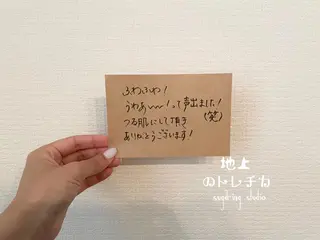 ふわふわ!
うわあ〜〜!って声出ました!
(笑)
つる肌にして頂き
ありがとうございます!
地上
のトレチカ
sugaring studio